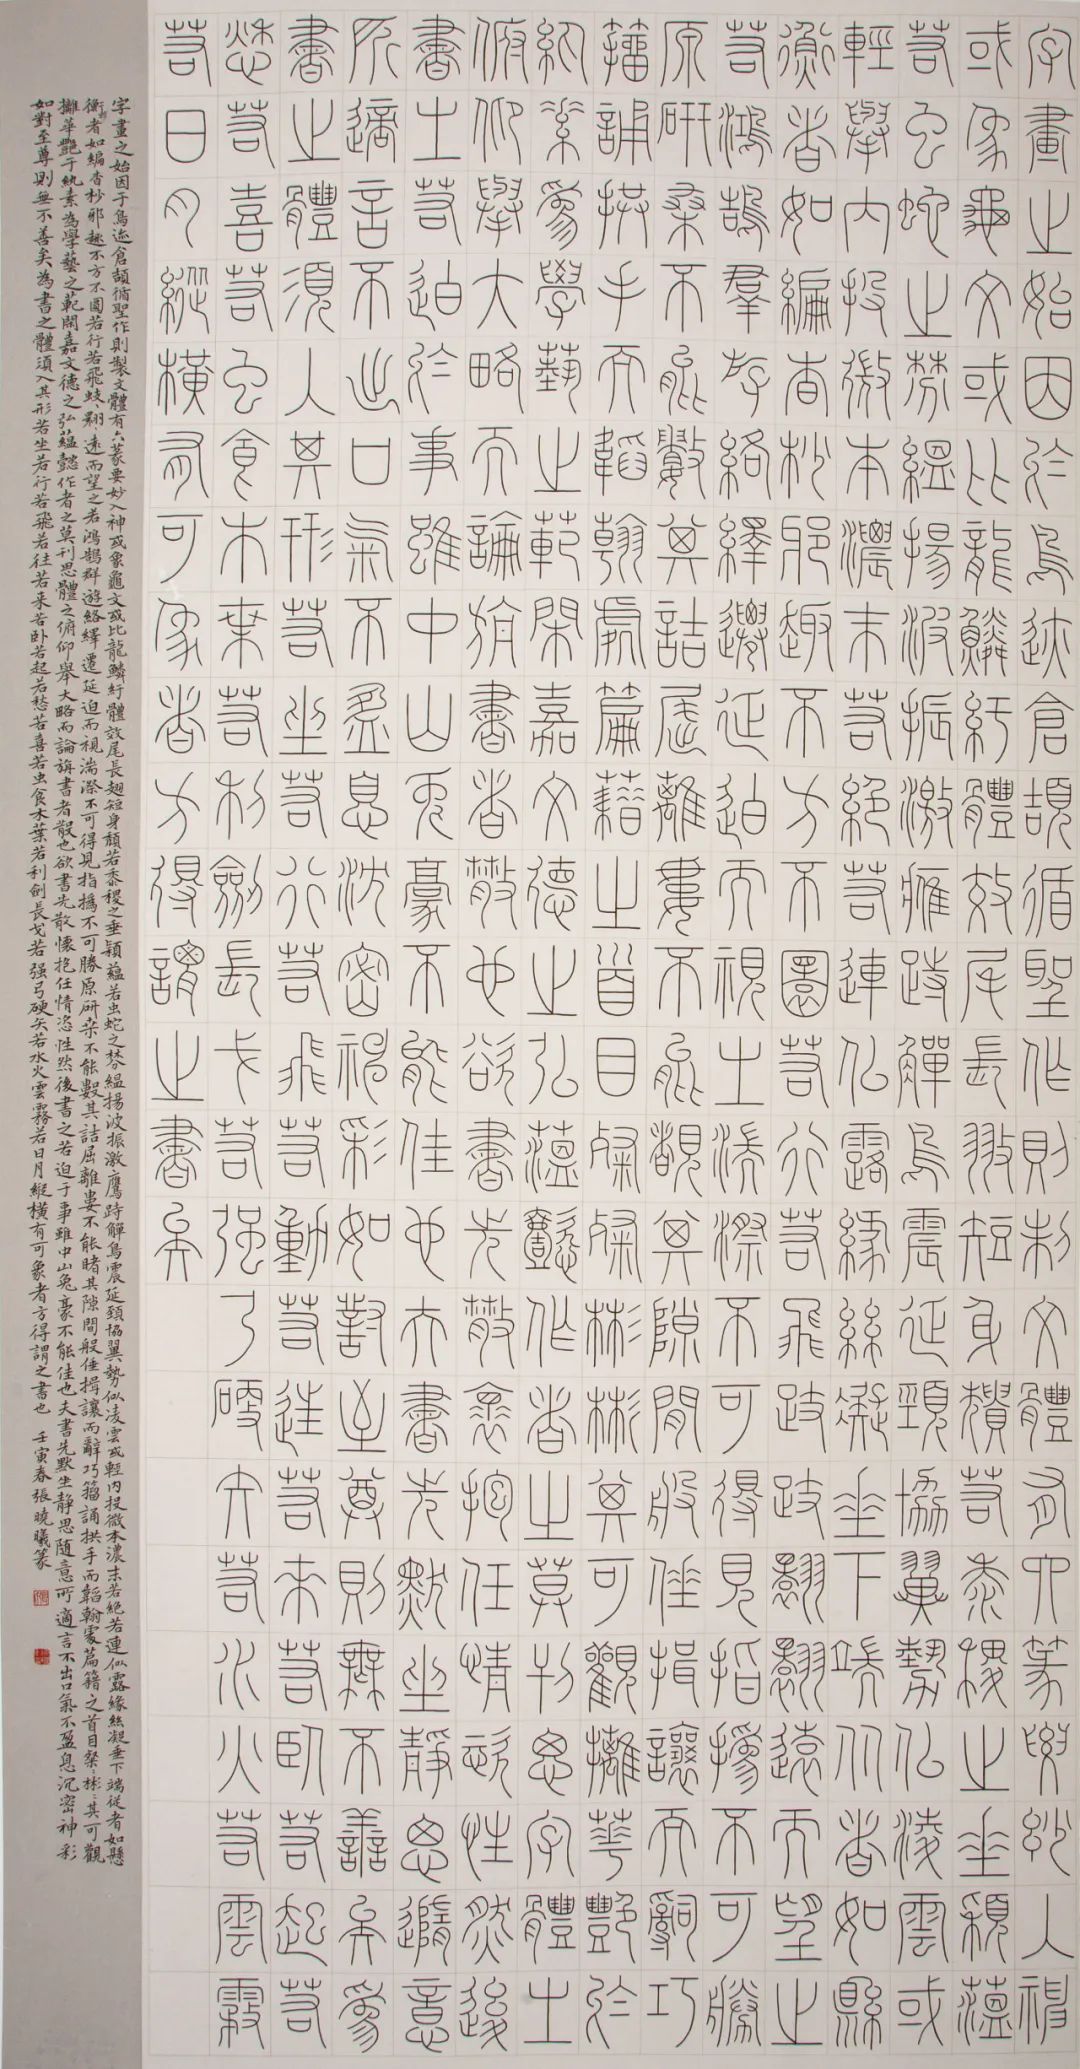 字畫之始因於鳥迹倉頡循聖作則制文體有六篆要妙入神
或象龜文或比龍鱗紆體效尾長翅短身頹若黍稷之垂穎蘊
若虫蛇之棼縕揚波振激鷹跱觶鳥震延頸協翼勢似凌雲或
輕舉內投微本濃末若絕若連似露緣絲凝垂下端从者如縣
衡者如編杳杪邪趣不方不圓若行若飛跂跂翾翾遠而望之
若鴻鵠群游絡繹遷延迫而視之湍漈不可得見指撝不可勝
原研桑不能數其詰屈離婁不能睹其隙間般倕揖讓而辭巧
籀誦拱手而韜翰處篇籍之首目粲粲彬彬其可觀摛華艷於
紈素為學藝之範閑嘉文德之弘蘊懿作者之莫刊思字體之
俯仰舉大略而論旃書者散也欲書先散懷抱任情恣性然後
書之若迫於事雖中山兔豪不能佳也夫書先默坐靜思隨意
所適言不出口氣不盈息沈密神彩如對至尊則無不善矣為
書之體須入其形若坐若行若飛若動若往若來若臥若起若
愁若喜若虫食木葉若利劍長戈若強弓硬矢若水火雲霧
若日月縱橫有可象者方得謂之書矣
字畫之始因于鳥迹倉頡循聖作則製文體有六篆要妙入神或象龜文或比龍鱗紆體效尾長翅短身頹若黍稷之垂穎蘊若虫蛇之棼縕揚波振激鷹跱觶鳥震延頸協翼勢似凌雲或輕內投微本濃末若絕若連似露緣絲凝垂下端從者如懸
衡者如編杳杪邪趣不方不圓若行若飛蚑蚑翾翾遠而望之若鴻鵠群游絡繹遷延迫而視湍漈不可得見指撝不可勝原研桑不能數其詰屈離婁不能睹其隙間般倕揖讓而辭巧籀誦拱手而韜翰處篇籍之首目粲粲彬彬其可觀
摛華艷于紈素為學藝之範閑嘉文德之弘蘊懿作者之莫刊思體之俯仰舉大略而論旃書者散也欲書先散懷抱任情恣性然後書之若迫于事雖中山兔豪不能佳也夫書先默坐靜思隨意所適言不出口氣不盈息沉密神彩
如對至尊則無不善矣為書之體須入其形若坐若行若飛若往若来若卧若起若愁若喜若虫食木葉若利劍長戈若强弓硬矢若水火雲霧若日月縱橫有可象者方得謂之書也 壬寅春張曉曦篆